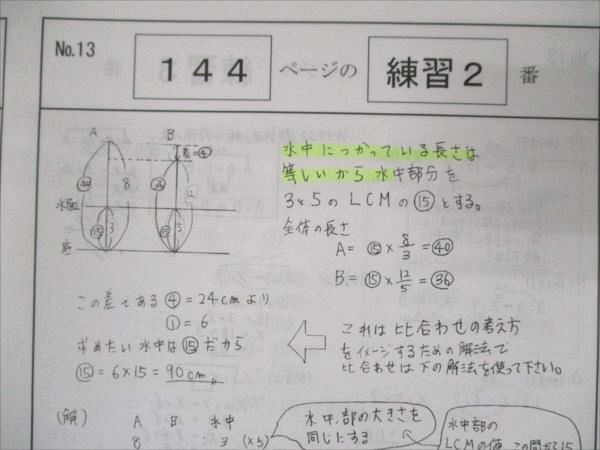 No.13
144 ページの 練習2 番
A B
差=④
㊵ 8 ㊱ 12
水面
⑮ 3 ⑮ 5
底
水中につかっている長さは
等しいから水中部分を
3と5のLCMの⑮とする。
全体の長さ
A= ⑮×8/3=㊵
B= ⑮×12/5=㊱
この差である④=24cmより
①=6
求めたい水中は⑮だから
⑮=6×15=90cm
これは比合わせの考え方
をイメージするための解法で
比合わせは下の解法を使って下さい。
(解)
A B 水中
8 : 3 (×5)
水中部の大きさを
同じにする
水中部の
LCMの値